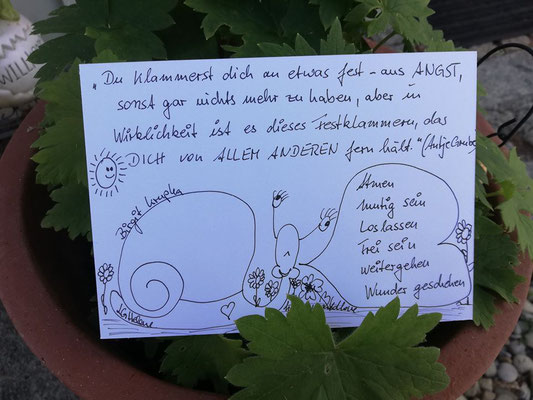 „Du klammerst dich an etwas fest – aus ANGST,
sonst gar nichts mehr zu haben, aber in
Wirklichkeit ist es dieses Festklammern, das
DICH von ALLEM ANDEREN fern hält.“ (Antje
Birgit
Atmen
mutig sein
Loslassen
Frei sein
weitergehen
Wunder geschehen
WILL